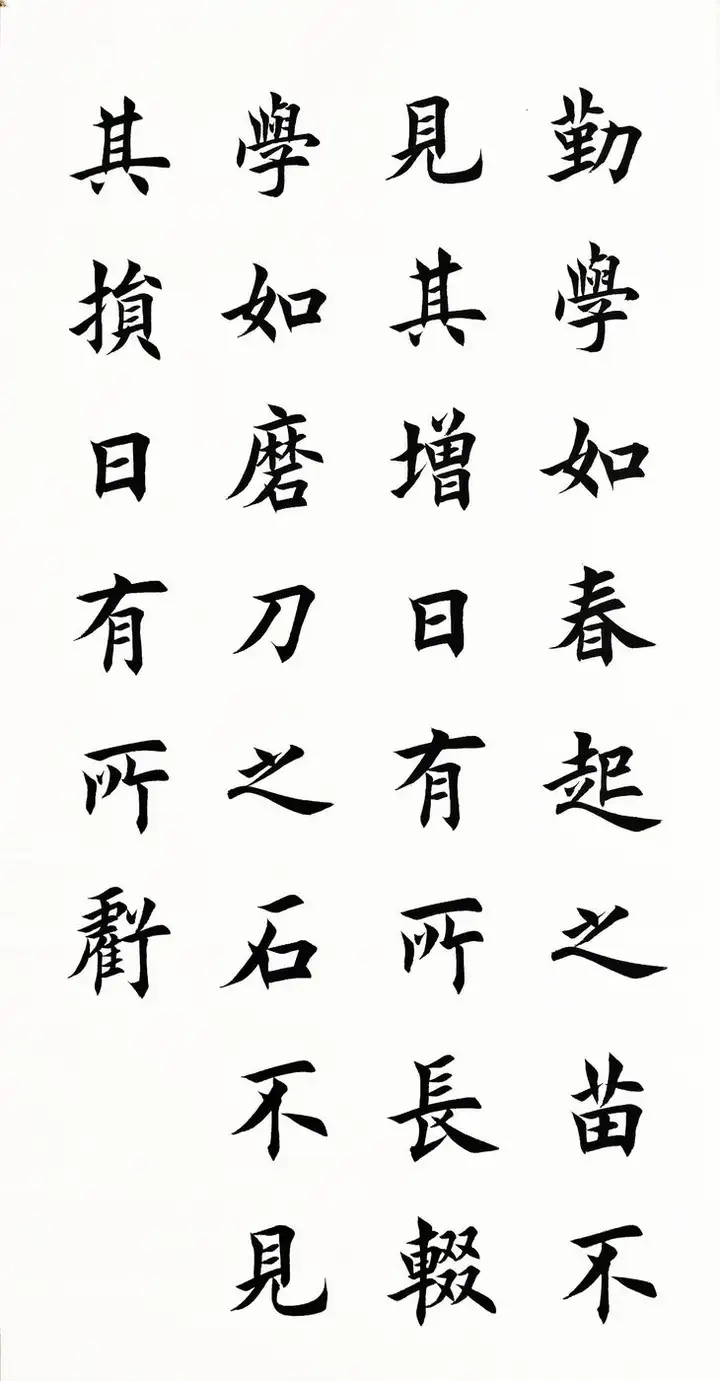 勤學如春起之苗不
見其增日有所長輟
學如磨刀之石不見
其損日有所虧